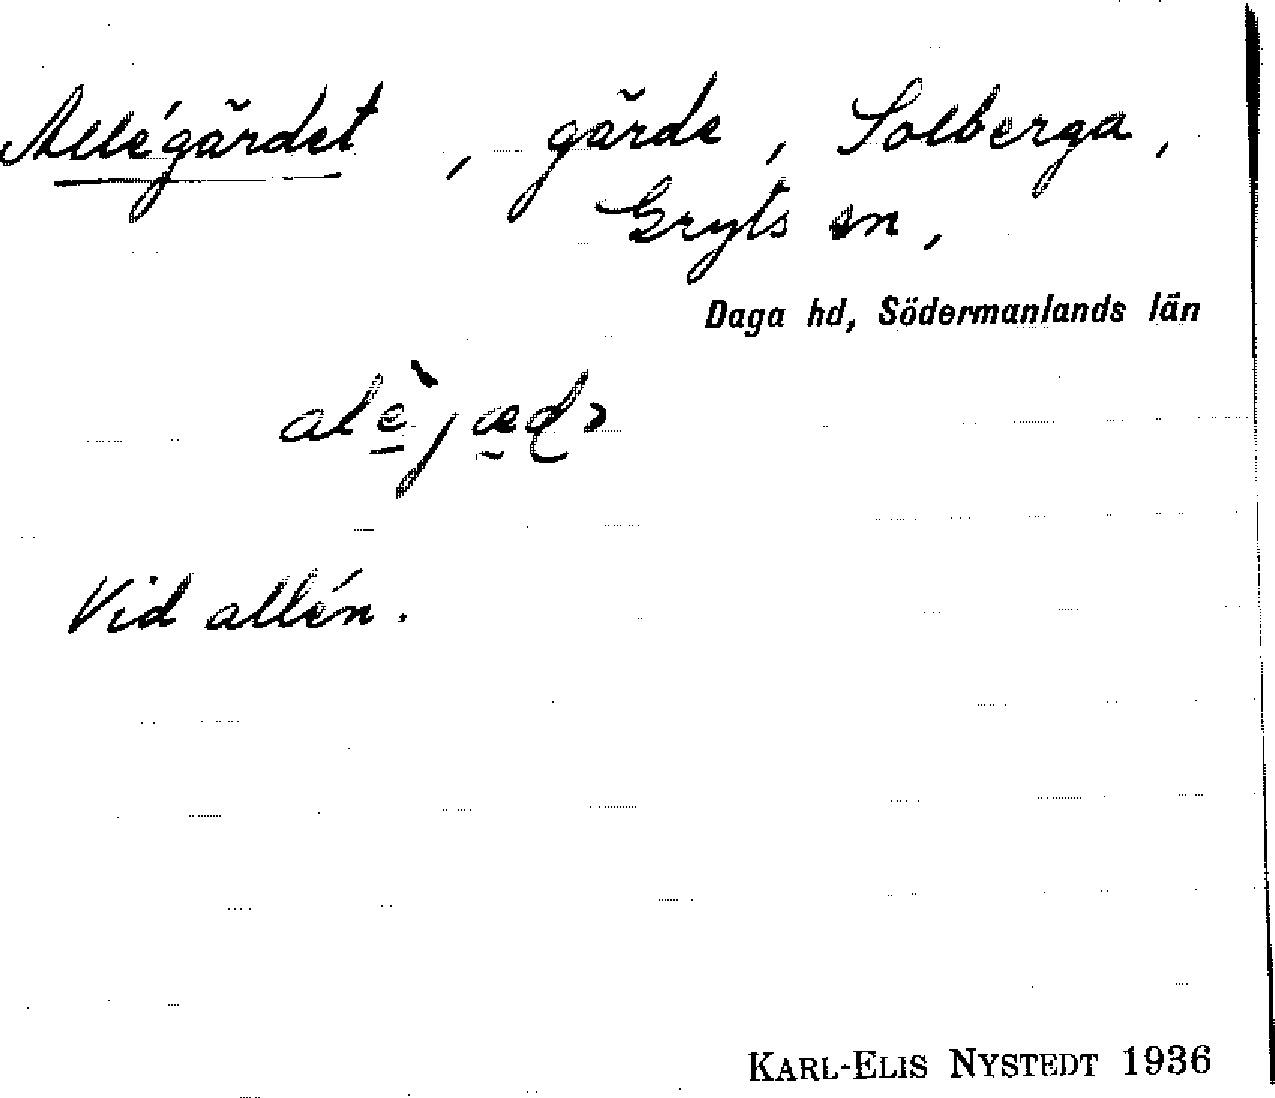 Allégärdet, gärde, Solberga,
Gryts sn,
Daga hd, Södermanlands län
Vid allén.
KARL-ELIS NYSTEDT 1936